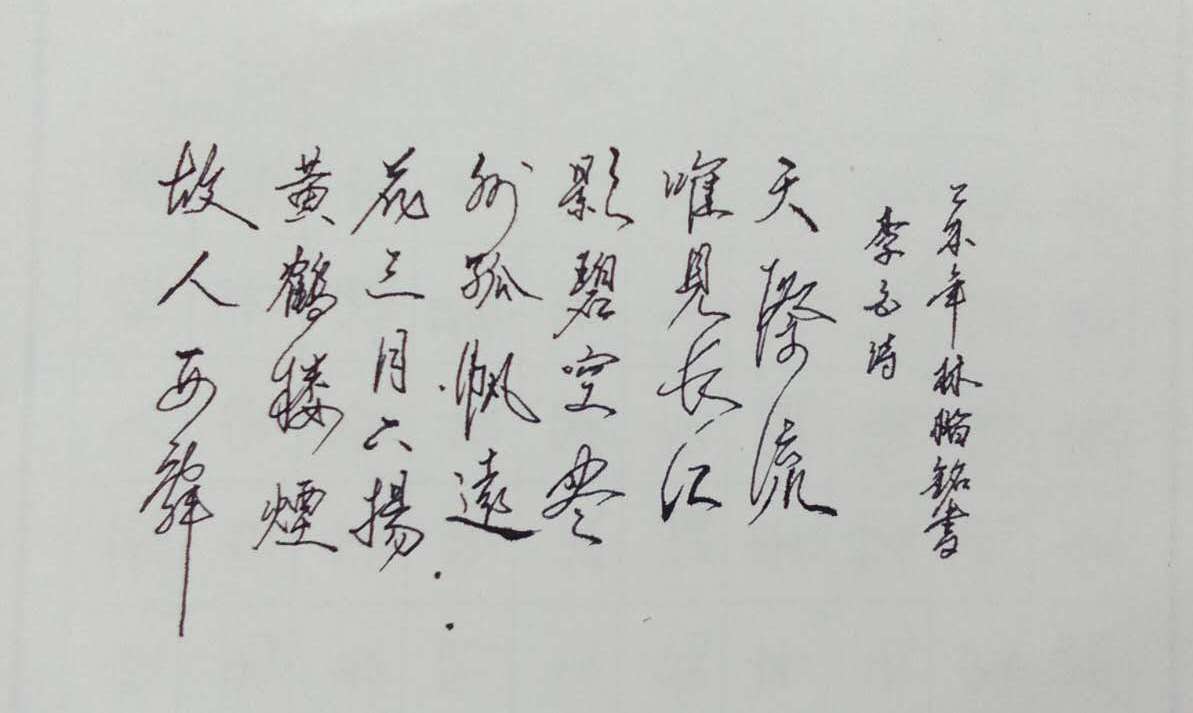 故人西辭
黃鶴樓煙
花三月下揚
州孤帆遠
影碧空尽
唯見長江
天際流
李白詩
乙未年林銘書